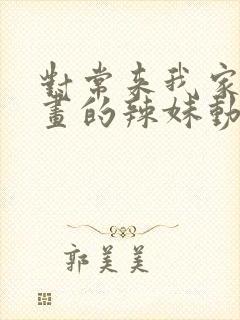 對常來我家
畫的辣妹動
郭美美